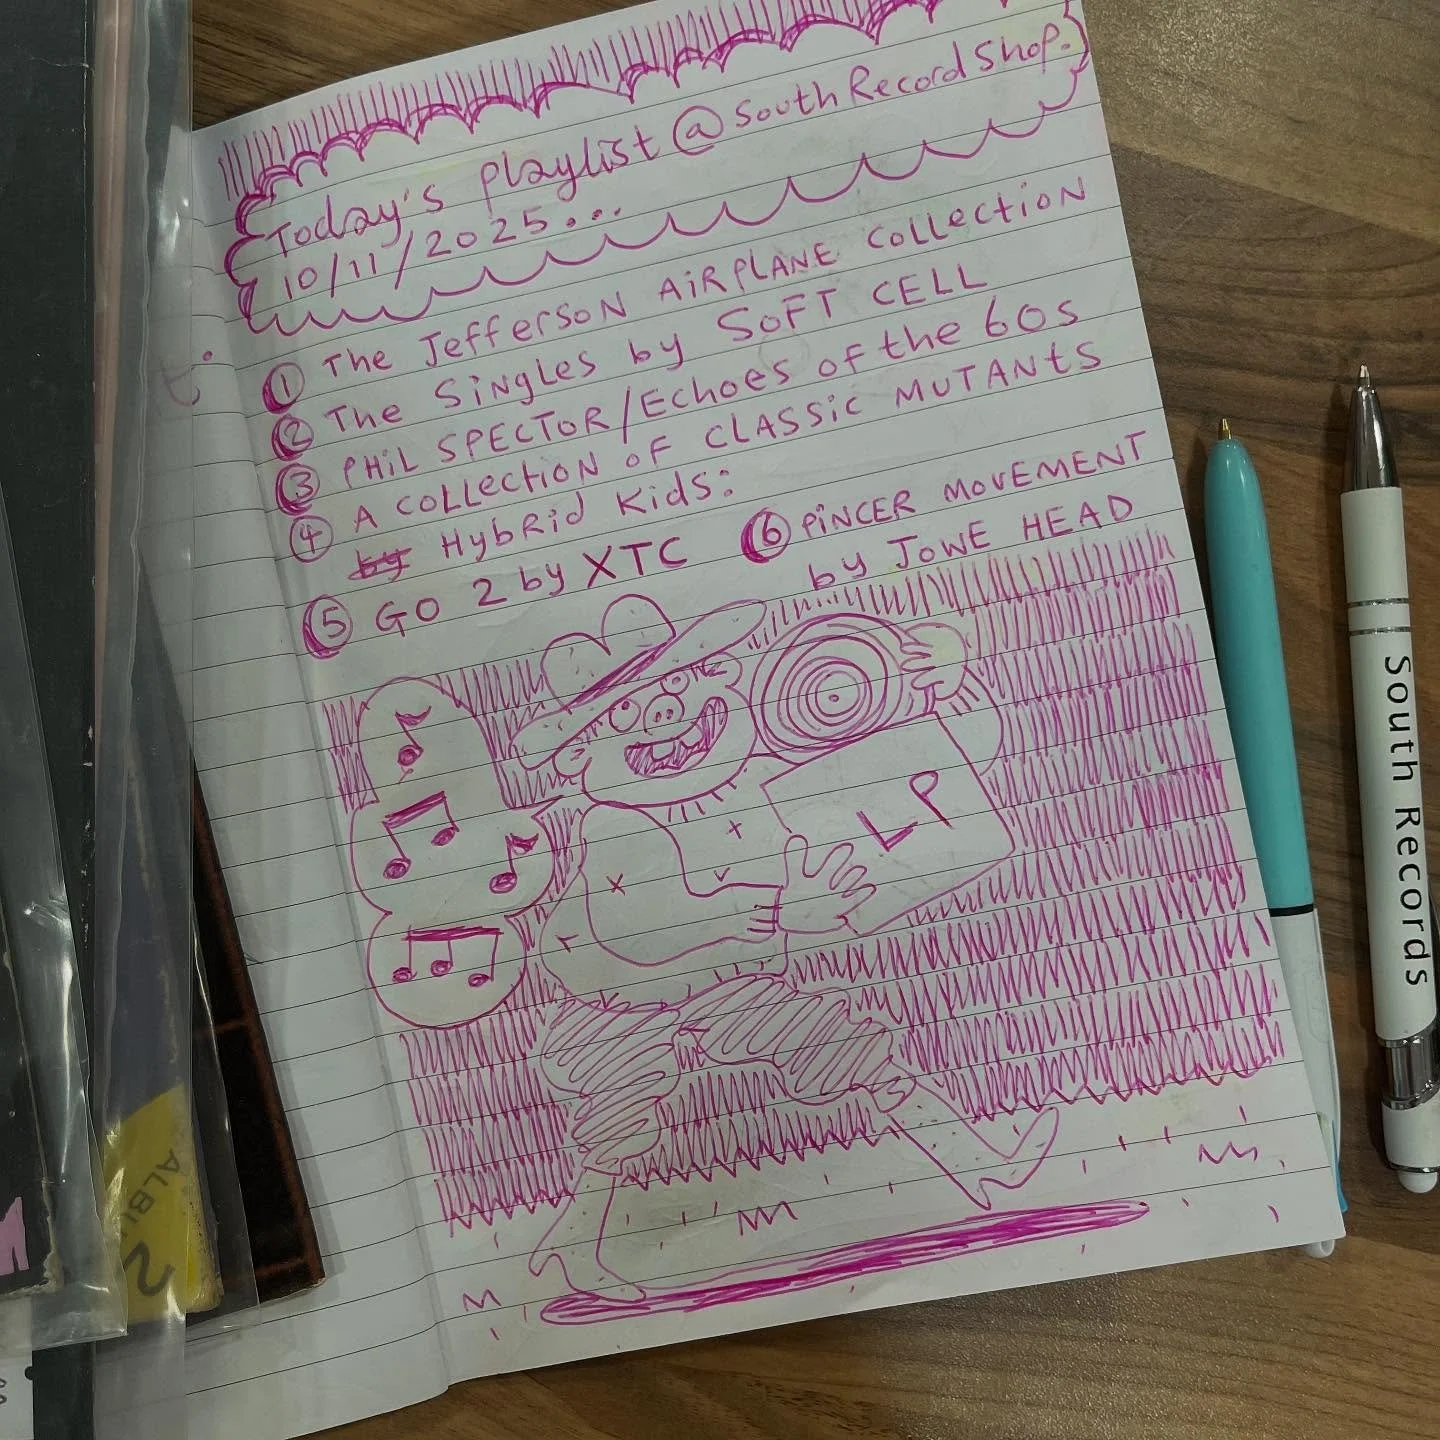 Today's playlist @ South Record Shop.
10/11/2025...
① The Jefferson AiRPLANE COLLection
② The SiNGLes by SoFT CELL
③ PHiL SPECTOR/Echoes of the 60s
④ A COLLectioN OF CLASSiC MUTANts
by HybRid Kids:
⑤ GO 2 by XTC
⑥ PiNCER MOVEMENT
by JOWE HEAD
LP
South Records
ALBU
2